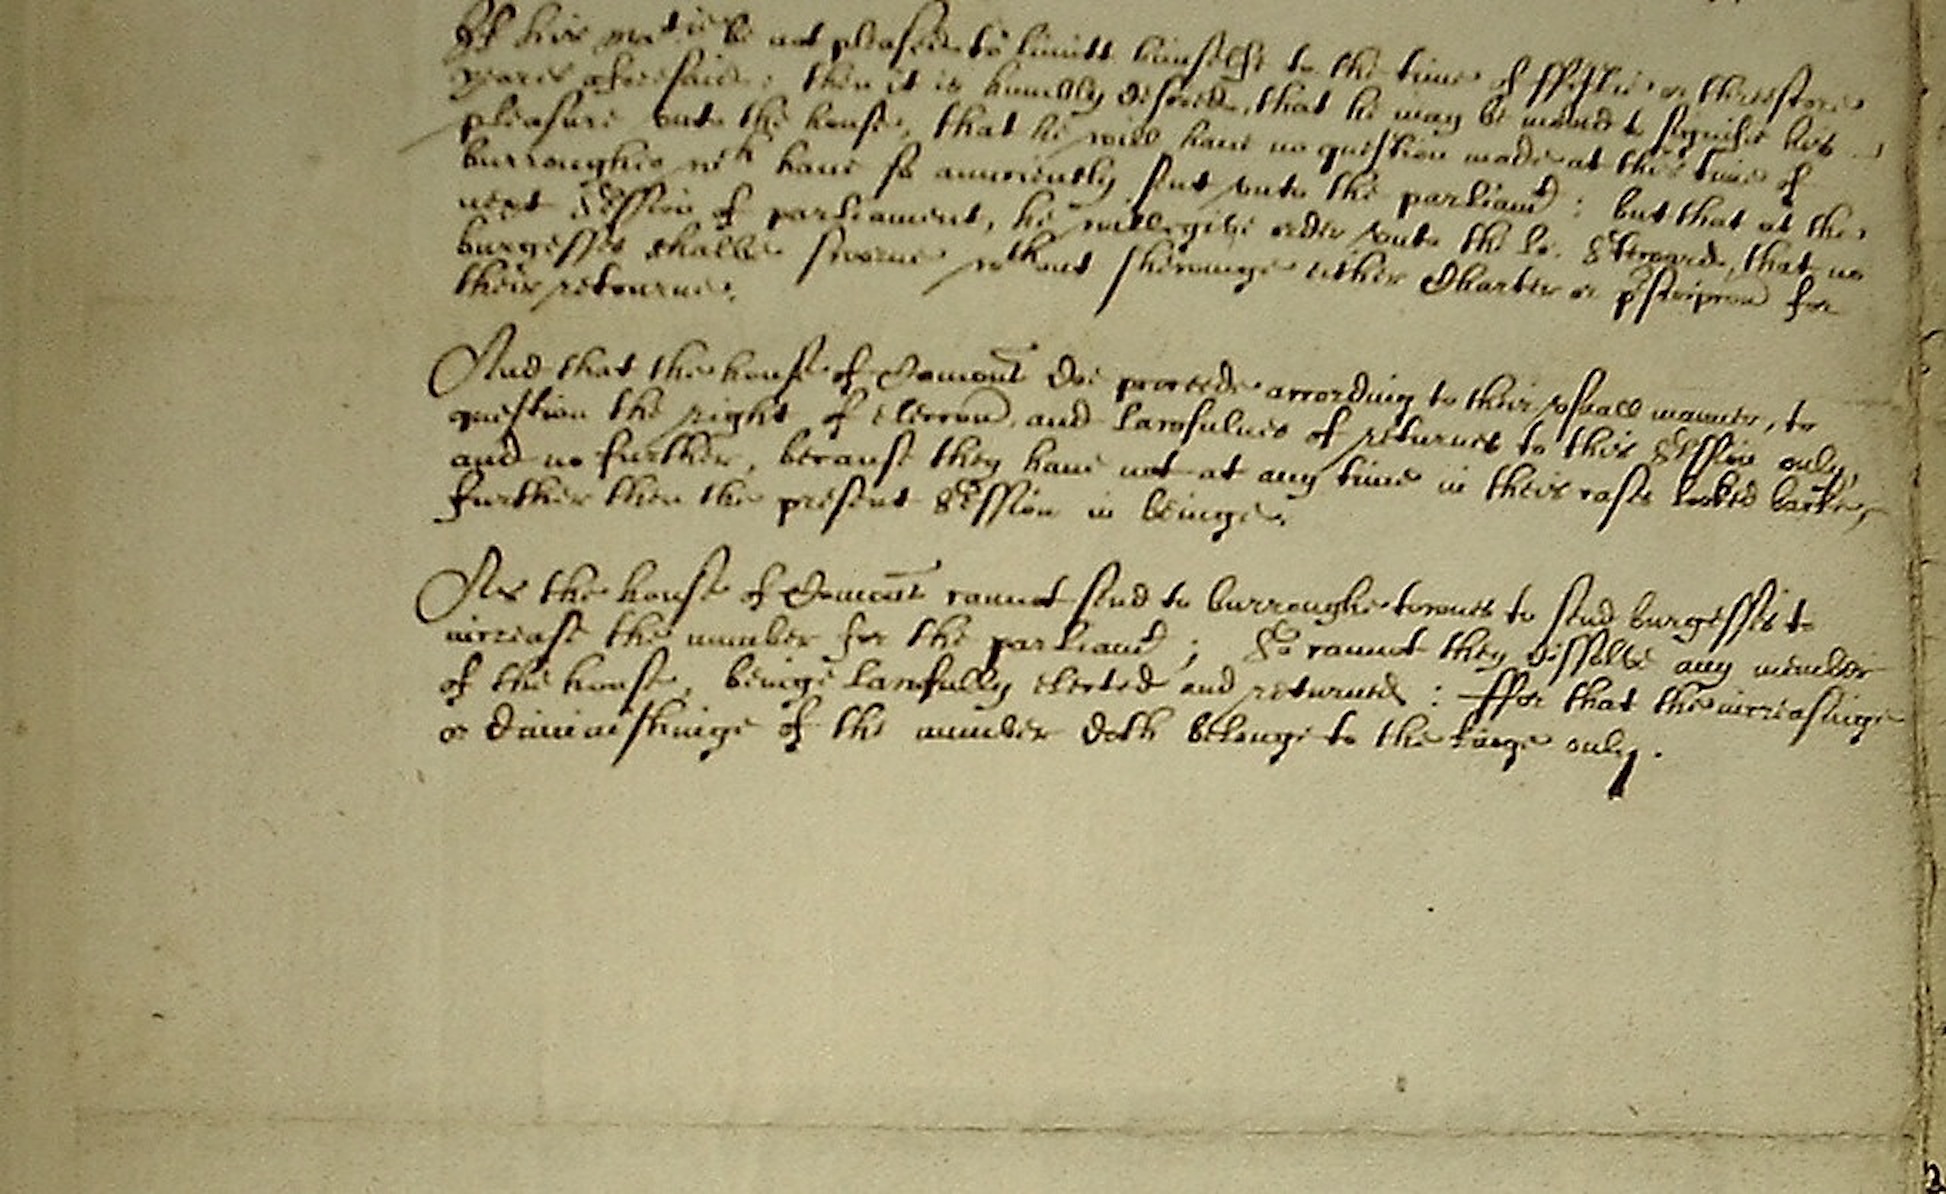 If his ma:tie be not pleased to limitt himselfe to the time of fyftie or threescore
yeares aforesaid: then it is humbly desired, that he may be moued to signifie his
pleasure vnto the house, that he will haue no question made at this time of
burroughes wch haue so aunciently sent vnto the parliamt: but that at the
next Session of parliament, he will giue order vnto the lo: Steward, that no
burgesses shalbe sworne wthout shewinge either Charter or pscripcon for
their retourne.
And that the house of Comons doe proceede according to their vsuall manner, to
question the right of eleccon and lawfulnes of returnes to this Session only,
and no further, because they haue not at any time in theis cases looked backe,
further then the present Session in beinge.
As the house of Comons cannot send to burroughe townes to send burgesses to
increase the number for the parliamt; So cannot they dissolve any member
of the house, beinge lawfully elected and returned: ffor that the increasinge
or diminishinge of the number doth belonge to the kinge only.